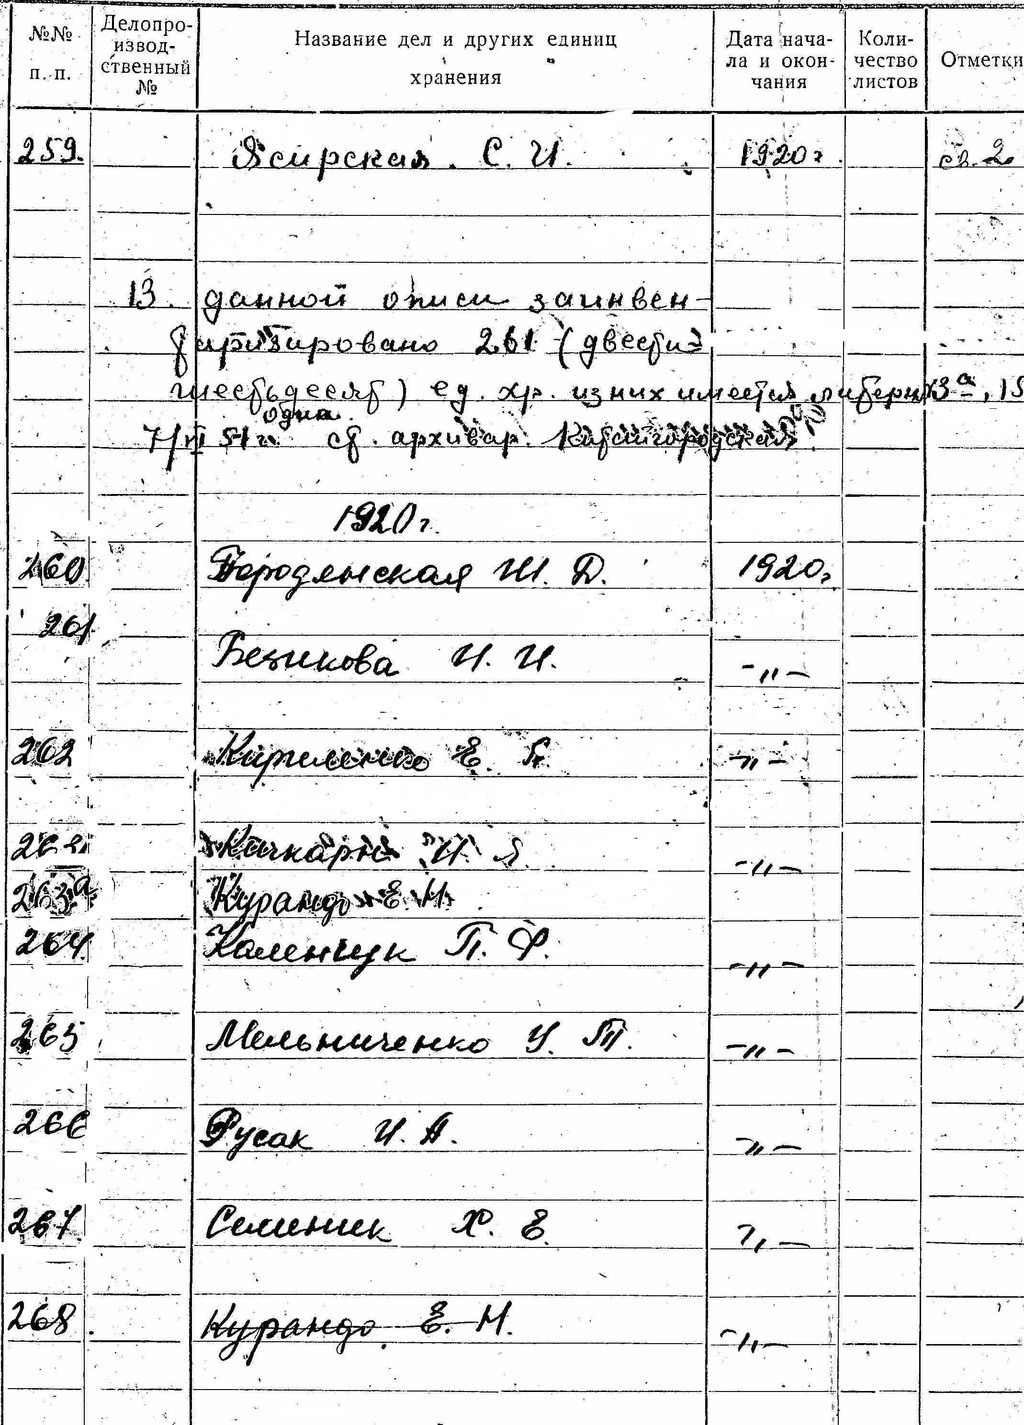 №№ п. п.
Делопро-
извод-
ственный
№
Название дел и других единиц
хранения
Дата нача-
ла и окон-
чания
Коли-
чество
листов
Отметки
259. Ясирская. С. И. 1920 г. св. 2
13. данной описи заинвен-
таризировано 261 (двести
шестьдесят одна) ед. хр. из них имеется литерных 3а, 15
7/VI 51 г. ст. архивар.
1920 г.
260. Бородянская Ш. Д. 1920 г.
261. Безикова И. И. -"-
262 Кириленко Е. -"-
263 И Я. -"-
263а Курандо Е Н.
264. Каленчук П. Ф. -"-
265 Мельниченко У. Т. -"-
266 Русак И. А. -"-
267. Семенюк Х. Е. -"-
268. Курандо Е. Н. -"-